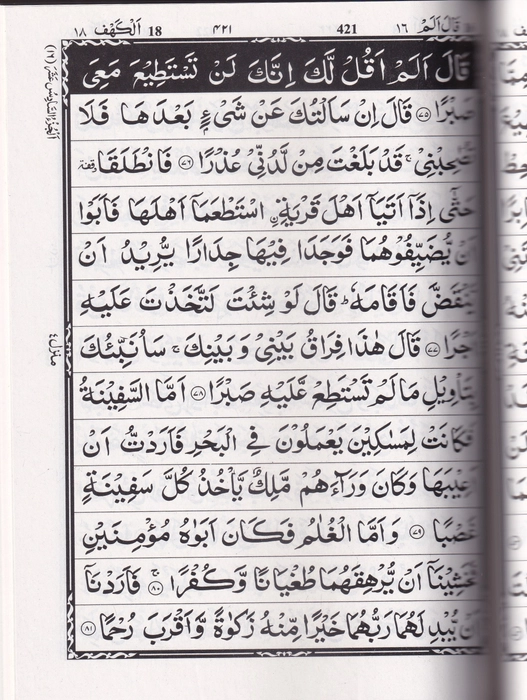 قَالَ اَلَمْ ١٦ 421 ٤٢١ 18 اَلْكَهْف ١٨
قَالَ اَلَمْ اَقُلْ لَّكَ اِنَّكَ لَنْ تَسْتَطِيْعَ مَعِیَ
صَبْرًا ﴿٧٥﴾ قَالَ اِنْ سَاَلْتُكَ عَنْ شَیْءٍۭ بَعْدَهَا فَلَا
تُصٰحِبْنِیْ ۚ قَدْ بَلَغْتَ مِنْ لَّدُنِّیْ عُذْرًا ﴿٧٦﴾ فَانْطَلَقَا ۥ وقفة
حَتّٰۤی اِذَاۤ اَتَيَاۤ اَهْلَ قَرْيَةِ ۟اسْتَطْعَمَاۤ اَهْلَهَا فَاَبَوْا
اَنْ يُّضَيِّفُوْهُمَا فَوَجَدَا فِيْهَا جِدَارًا يُّرِيْدُ اَنْ
يَّنْقَضَّ فَاَقَامَهٗ ؕ قَالَ لَوْ شِئْتَ لَتَّخَذْتَ عَلَيْهِ
اَجْرًا ﴿٧٧﴾ قَالَ هٰذَا فِرَاقُ بَيْنِیْ وَ بَيْنِكَ ۚ سَاُنَبِّئُكَ
بِتَاْوِيْلِ مَا لَمْ تَسْتَطِعْ عَّلَيْهِ صَبْرًا ﴿٧٨﴾ اَمَّا السَّفِيْنَةُ
فَكَانَتْ لِمَسٰكِيْنَ يَعْمَلُوْنَ فِی الْبَحْرِ فَاَرَدْتُّ اَنْ
اَعِيْبَهَا وَكَانَ وَرَآءَهُمْ مَّلِكٌ يَّاْخُذُ كُلَّ سَفِيْنَةٍ
غَصْبًا ﴿٧٩﴾ وَ اَمَّا الْغُلٰمُ فَكَانَ اَبَوٰهُ مُؤْمِنَيْنِ
فَخَشِيْنَاۤ اَنْ يُّرْهِقَهُمَا طُغْيَانًا وَّ كُفْرًا ﴿٨٠﴾ ۚ فَاَرَدْنَاۤ
اَنْ يُّبْدِلَهُمَا رَبُّهُمَا خَيْرًا مِّنْهُ زَكٰوةً وَّ اَقْرَبَ رُحْمًا ﴿٨١﴾
اَلْجُزْءُ السَّادِسَ عَشَرَ (١٦)
منزل ٤